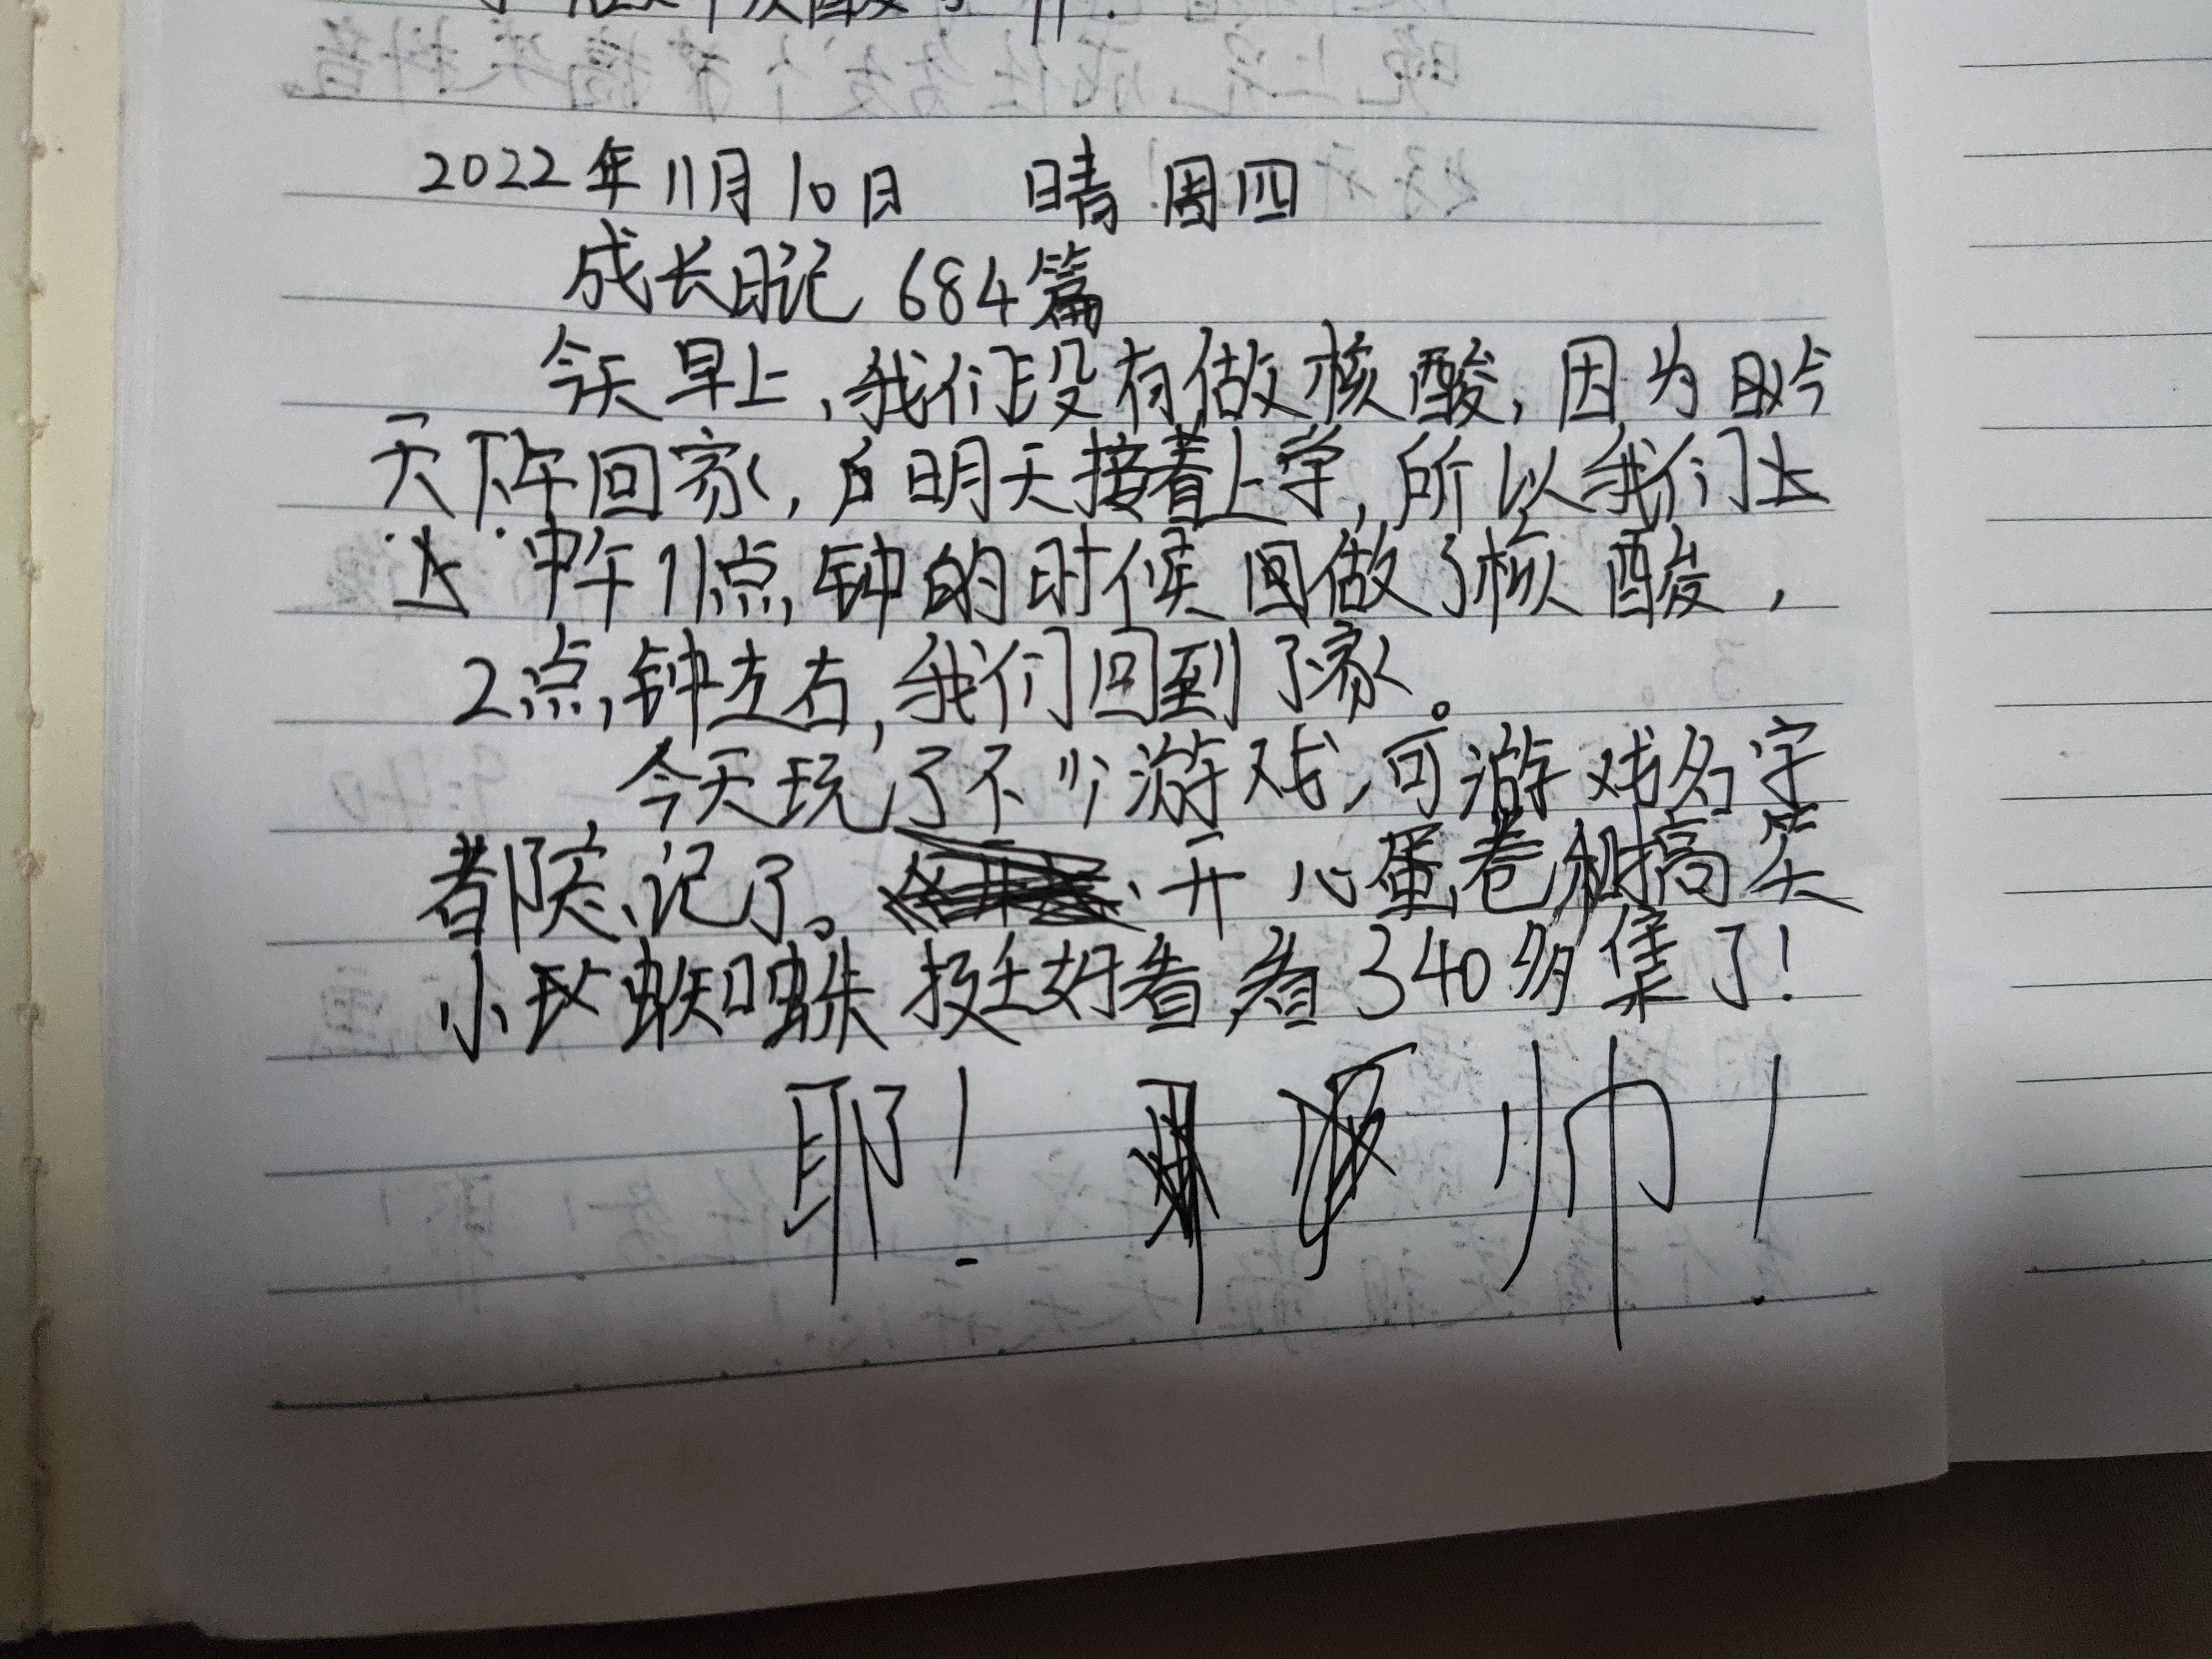 2022年11月10日 晴 周四
成长日记 684篇
今天早上,我们没有做核酸,因为今
天下午回家,明天接着上学,所以我们
中午11点钟的时候回做了核酸,
2点钟左右,我们回到了家。
今天玩了不少游戏,可游戏名字
都忘记了。开心蛋卷和搞笑
小蜘蛛挺好看,看340多集了!
耶! 帅!